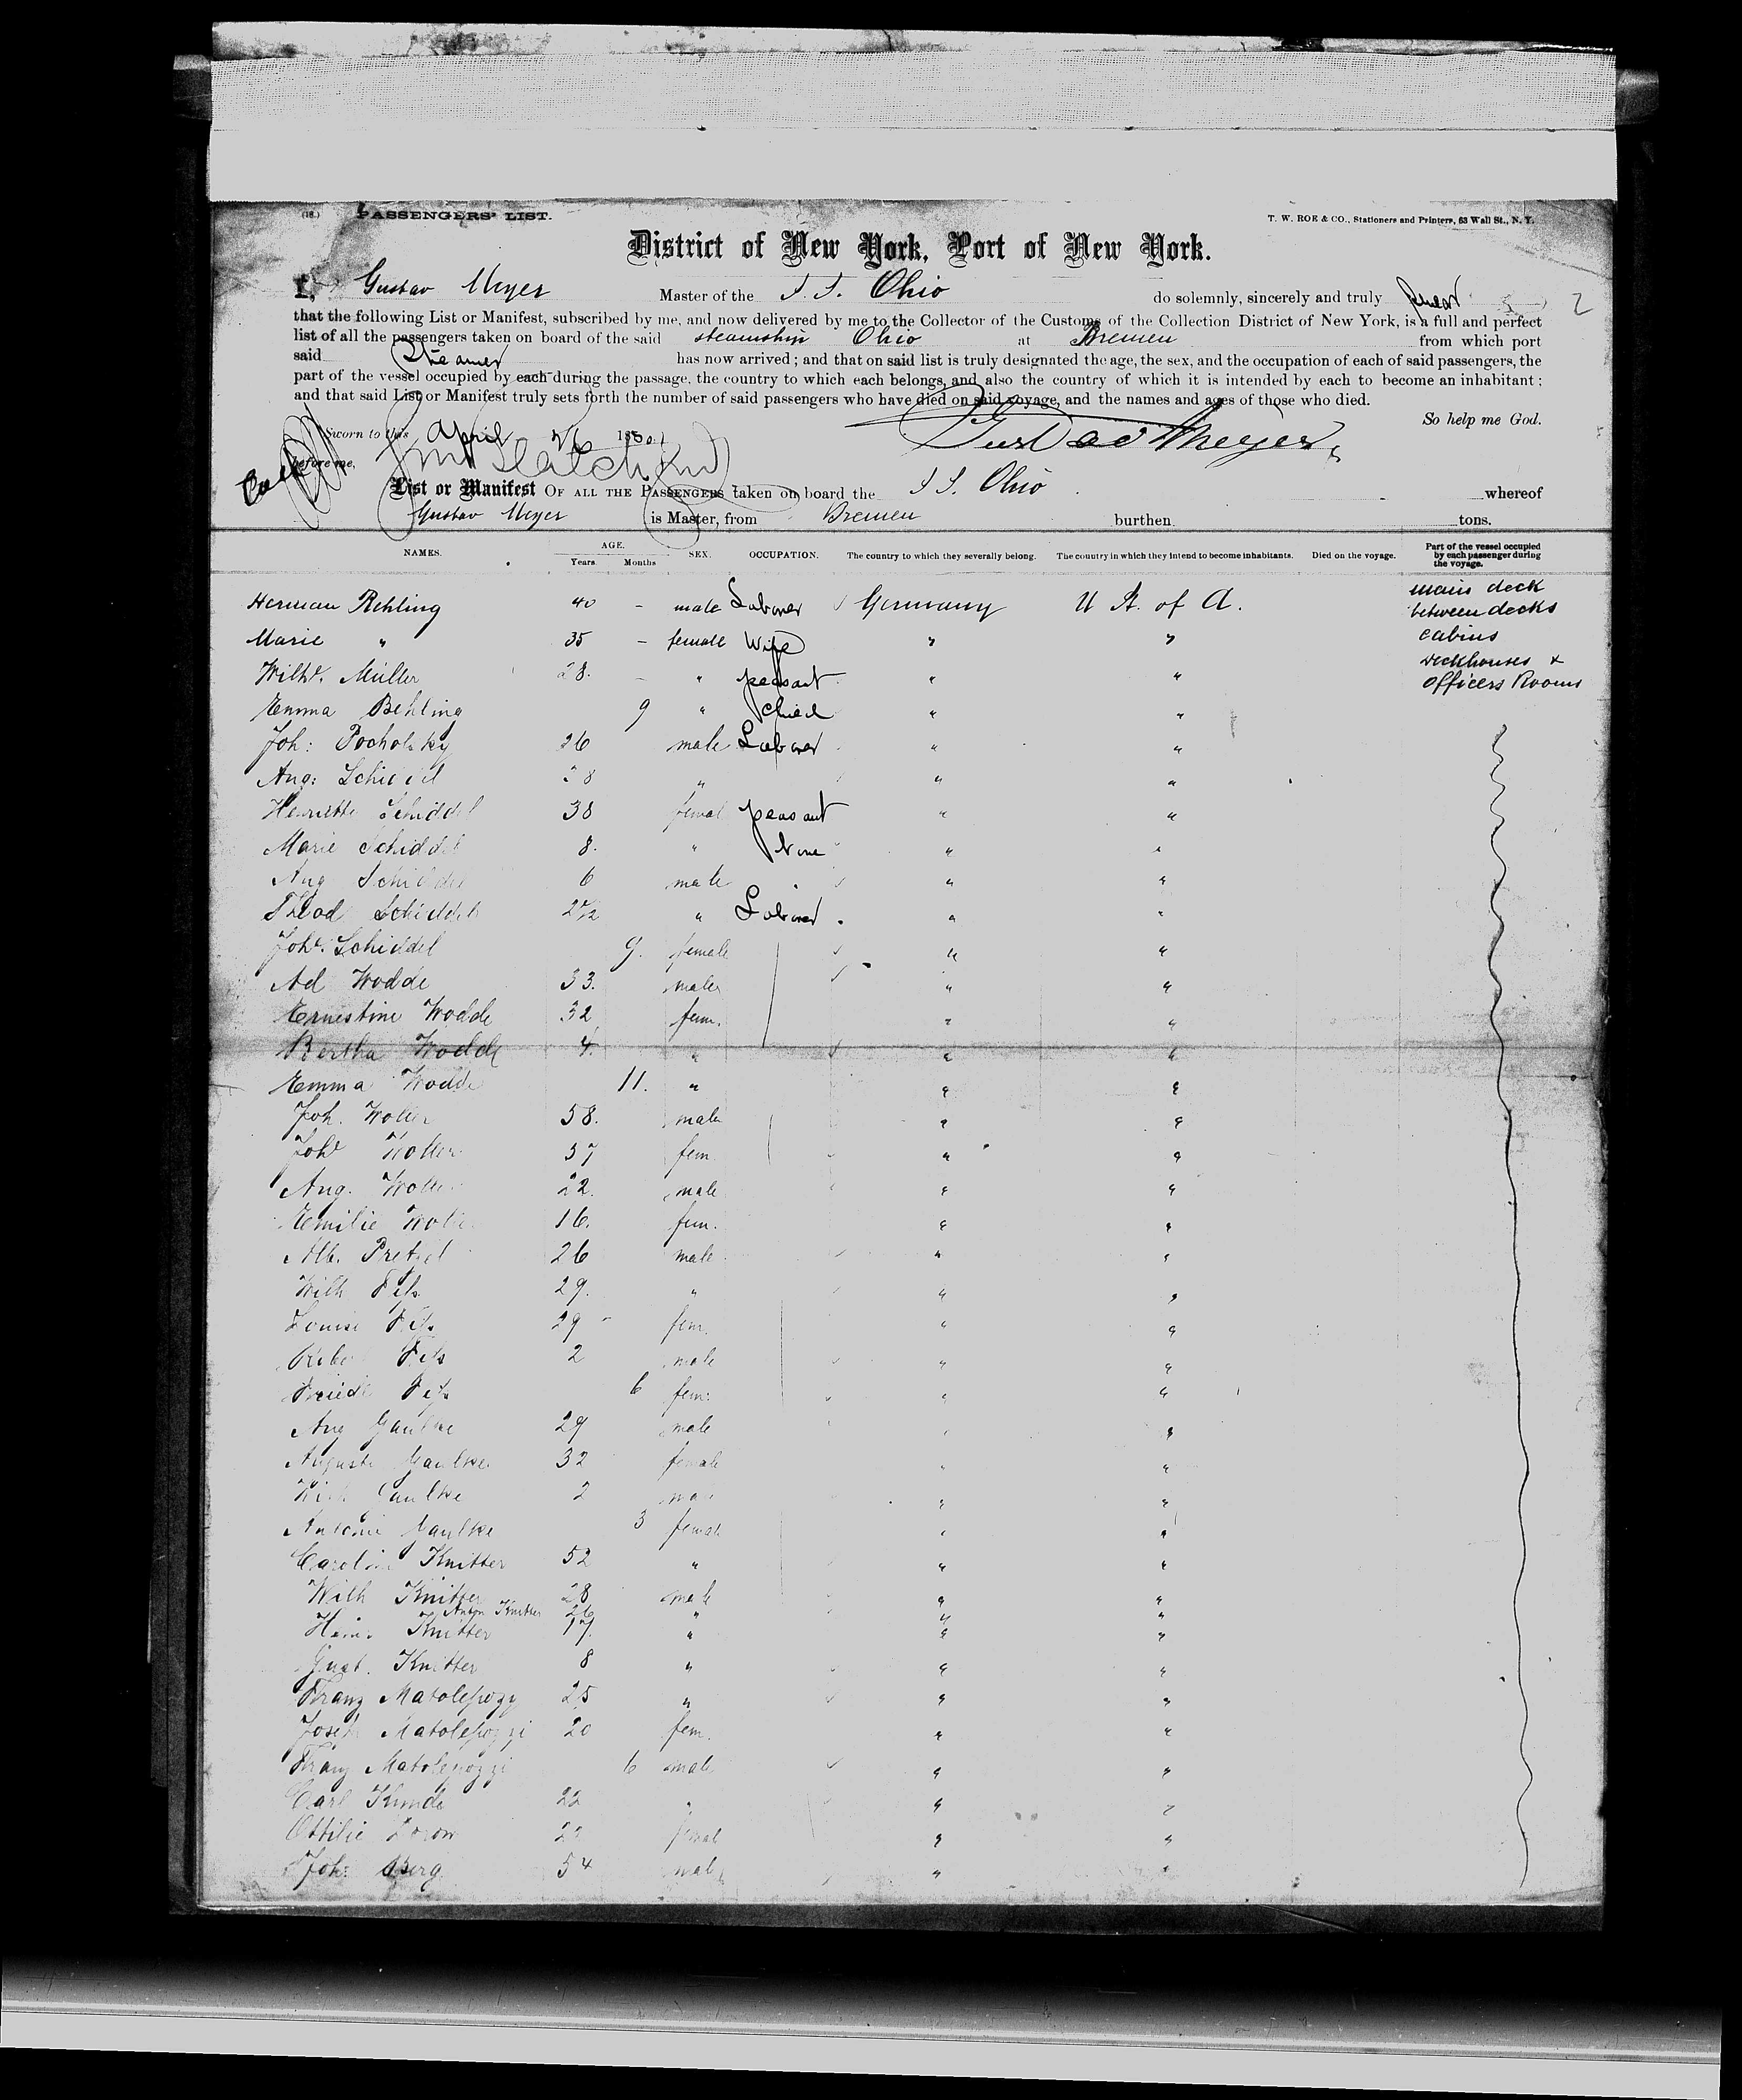 (18.) PASSENGERS' LIST. T. W. ROE & CO., Stationers and Printers, 63 Wall St., N. Y.
District of New York, Port of New York.
I, Gustav Meyer Master of the S. S. Ohio do solemnly, sincerely and truly swear 2
that the following List or Manifest, subscribed by me, and now delivered by me to the Collector of the Customs of the Collection District of New York, is a full and perfect
list of all the passengers taken on board of the said steamship Ohio at Bremen from which port
said Steamer has now arrived; and that on said list is truly designated the age, the sex, and the occupation of each of said passengers, the
part of the vessel occupied by each during the passage, the country to which each belongs, and also the country of which it is intended by each to become an inhabitant;
and that said List or Manifest truly sets forth the number of said passengers who have died on said voyage, and the names and ages of those who died.
So help me God.
Sworn to this April 26 1880 Gustav Meyer
before me,
List or Manifest OF ALL THE PASSENGERS taken on board the S S. Ohio whereof
Gustav Meyer is Master, from Bremen burthen tons.
NAMES. AGE. Years. Months SEX. OCCUPATION. The country to which they severally belong. The country in which they intend to become inhabitants. Died on the voyage. Part of the vessel occupied by each passenger during the voyage.
Herman Rehling 40 - male Laborer Germany U St. of A. main deck
between decks
Marie " 35 - female Wife " " cabins
deckhouses &
Wilhe. Müller 28. - " peasant " " officers Rooms
Emma Behling 9 " child " "
Joh: Pocholsky 26 male Laborer " "
Aug: Schiddel 38 " " "
Henriette Schiddel 38 femal peasant " "
Marie Schiddel 8. " None " "
Aug Schiddel 6 male " "
Theod Schiddel 2 1/2 " Laborer " "
Johe. Schiddel 9. female " "
Ad Wodde 33. male " "
Ernestine Wodde 32 fem. " "
Bertha Wodde 4. " " "
Emma Wodde 11. " " "
Joh. Woller 58. male " "
Johe Woller 57 fem. " "
Aug. Woller 22. male " "
Emilie Woller 16. fem. " "
Alb. Pretzel 26 male " "
Wilh Fets 29. " " "
Louise Fets 29 - fem. " "
Fets 2 male " "
Friedk Fets 6 fem: " "
Aug Gaulke 29 male " "
Auguste Gaulke 32 female " "
Wilh Gaulke 2 male " "
Antonie Gaulke 3 female " "
Carolin Knitter 52 " " "
Wilh Knitter 28 male " "
Anton Knitter 26 " " "
Heinr Knitter 17. " " "
Gust. Knitter 8 " " "
Franz Matolepozy 25 " " "
Joseph Matolepozzi 20 fem. " "
Franz Matolepozzi 6 male " "
Carl Kunde 22 " " "
Ottilie 22 femal " "
Joh: Berg 54 male " "